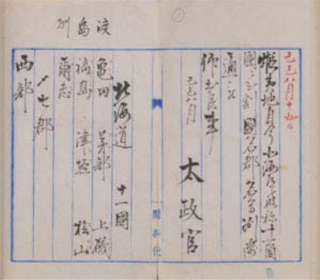 己巳八月十五日
蝦夷地自今北海道被称十一箇
國ニ分割國名郡名等別紙
通被
仰出候事
己巳八月
太政官
北海道 十一國
渡島
亀田 茅部 上磯
福島 津軽 桧山
爾志
〆七郡
西部